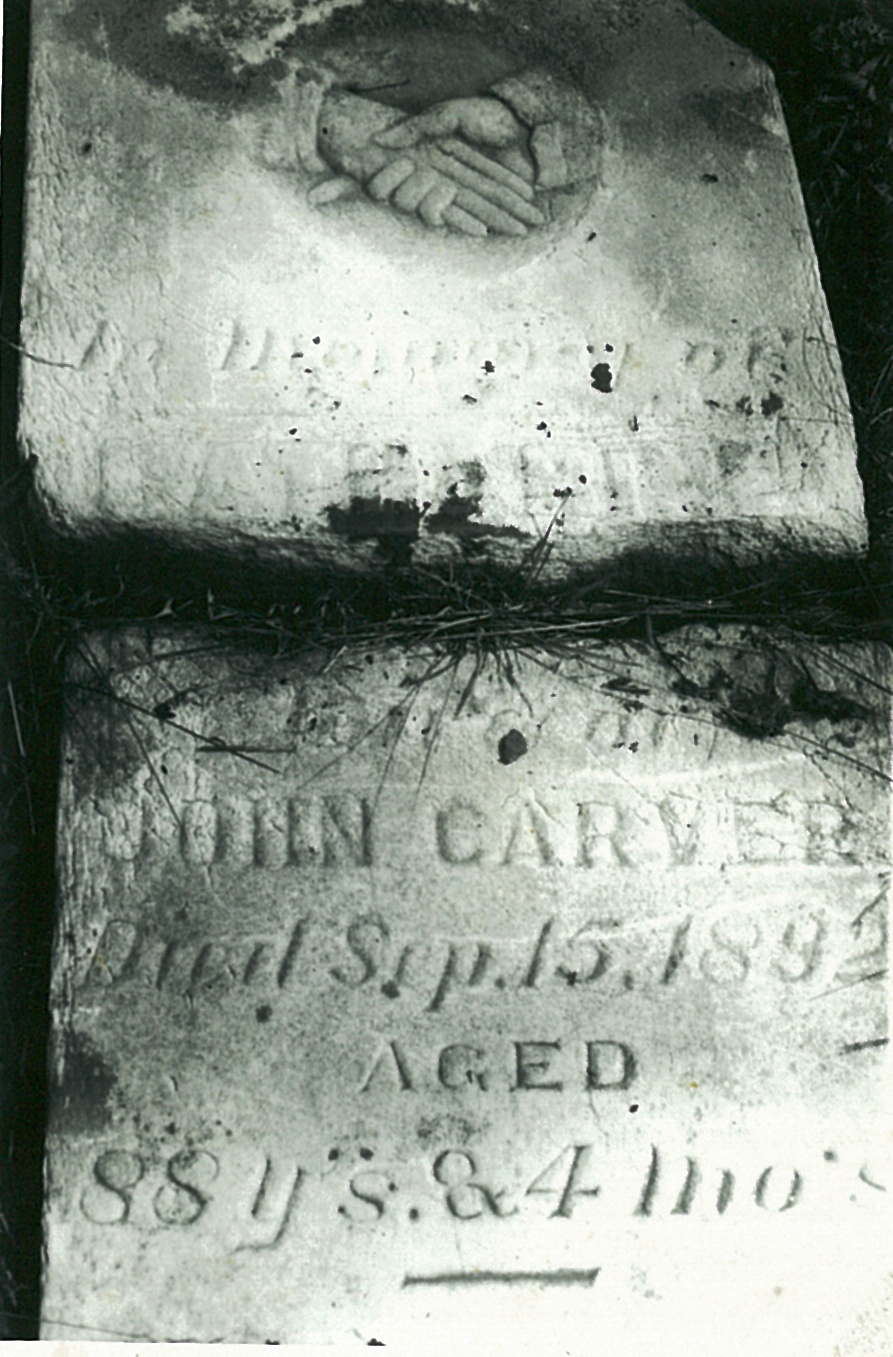 In memory of
JOHN CARVER
Died Sep. 15, 1892
AGED
88 y's. & 4 mo's